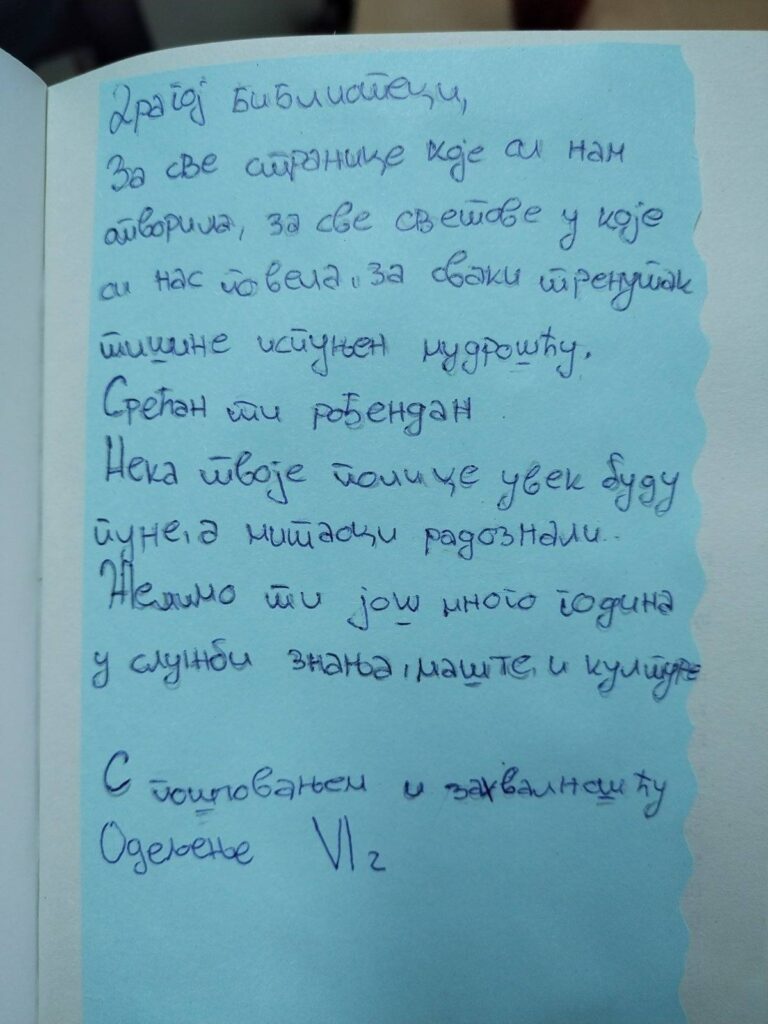 Драгој библиотеци,
За све странице које си нам
отворила, за све светове у које
си нас повела, за сваки тренутак
тишине испуњен мудрошћу.
Срећан ти рођендан
Нека твоје полице увек буду
пуне, а читаоци радознали.
Желимо ти још много година
у служби знања, маште, и културе
С поштовањем и захвалношћу
Одељење VI2